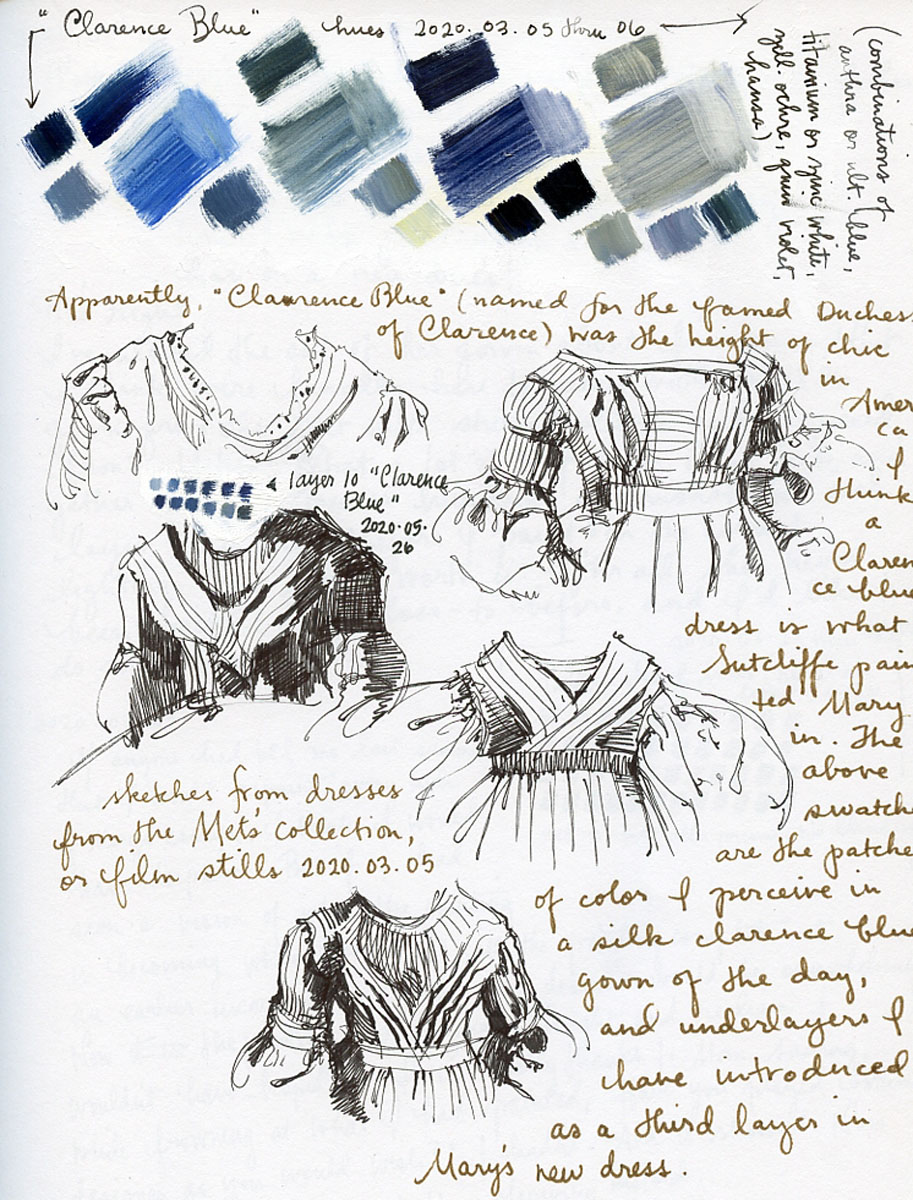 "Clarence Blue" hues 2020.03.05 thru 06
(combinations of
anthra or ult. blue,
titanium or zinc white,
yell. ochre, quin violet,
hansa)
Apparently, "Clarence Blue" (named for the famed Duchess
of Clarence) was the height of chic
in
Ameri
ca
I
think
a
Claren
ce blue
dress is what
Sutcliffe pain
ted Mary
in. The
above
swatch
are the patche
of color I perceive in
a silk clarence blue
gown of the day,
and underlayers I
have introduced
as a third layer in
Mary's new dress.
layer 10 "Clarence
Blue"
2020.05.
26
sketches from dresses
from the Met's collection,
or film stills 2020.03.05